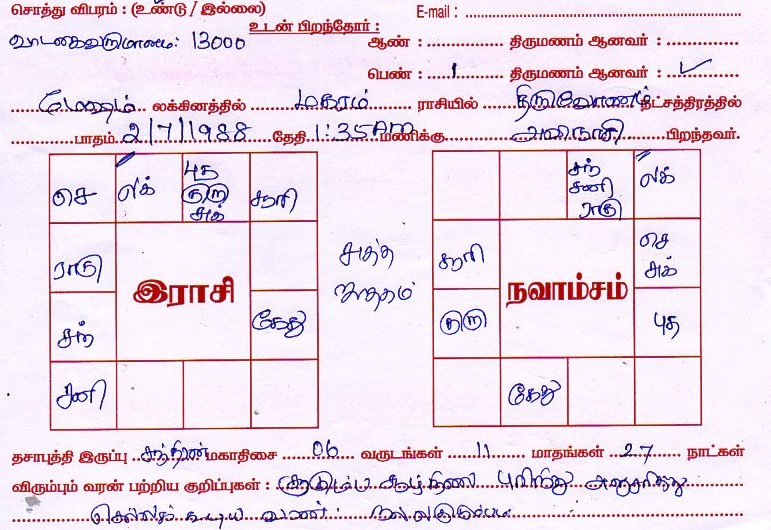 சொத்து விபரம் : (உண்டு / இல்லை) E-mail :
உடன் பிறந்தோர் :
வாடகைவருமானம்: 13000 ஆண் : திருமணம் ஆனவர் :
பெண் : 1 திருமணம் ஆனவர் : ✓
மேஷம் லக்கினத்தில் மகரம் ராசியில் திருவோணம் நட்சத்திரத்தில்
பாதம் 2/7/1988 தேதி 1:35AM மணிக்கு அவிநாசி பிறந்தவர்.
செ லக் புத குரு சுக் சூரி
ராகு
சந்
சனி
கேது
இராசி
சந் சனி ராகு லக்
சூரி செ சுக்
குரு புத
கேது
நவாம்சம்
தசாபுத்தி இருப்பு சந்திரன் மகாதிசை 06 வருடங்கள் 11 மாதங்கள் 27 நாட்கள்
விரும்பும் வரன் பற்றிய குறிப்புகள் : குடும்ப சூழ்நிலை புரிந்து அனுசரித்து
செல்லக்கூடிய வரன். நல்லகுடும்பம்